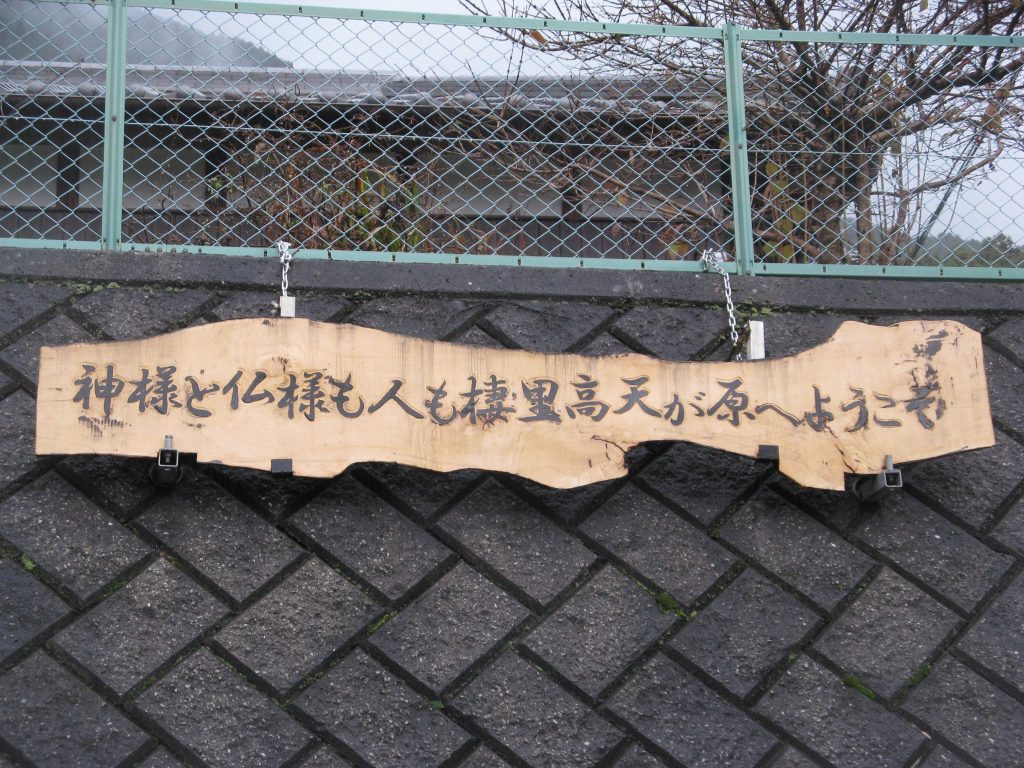 神様と仏様も人も棲里高天が原へようこそ